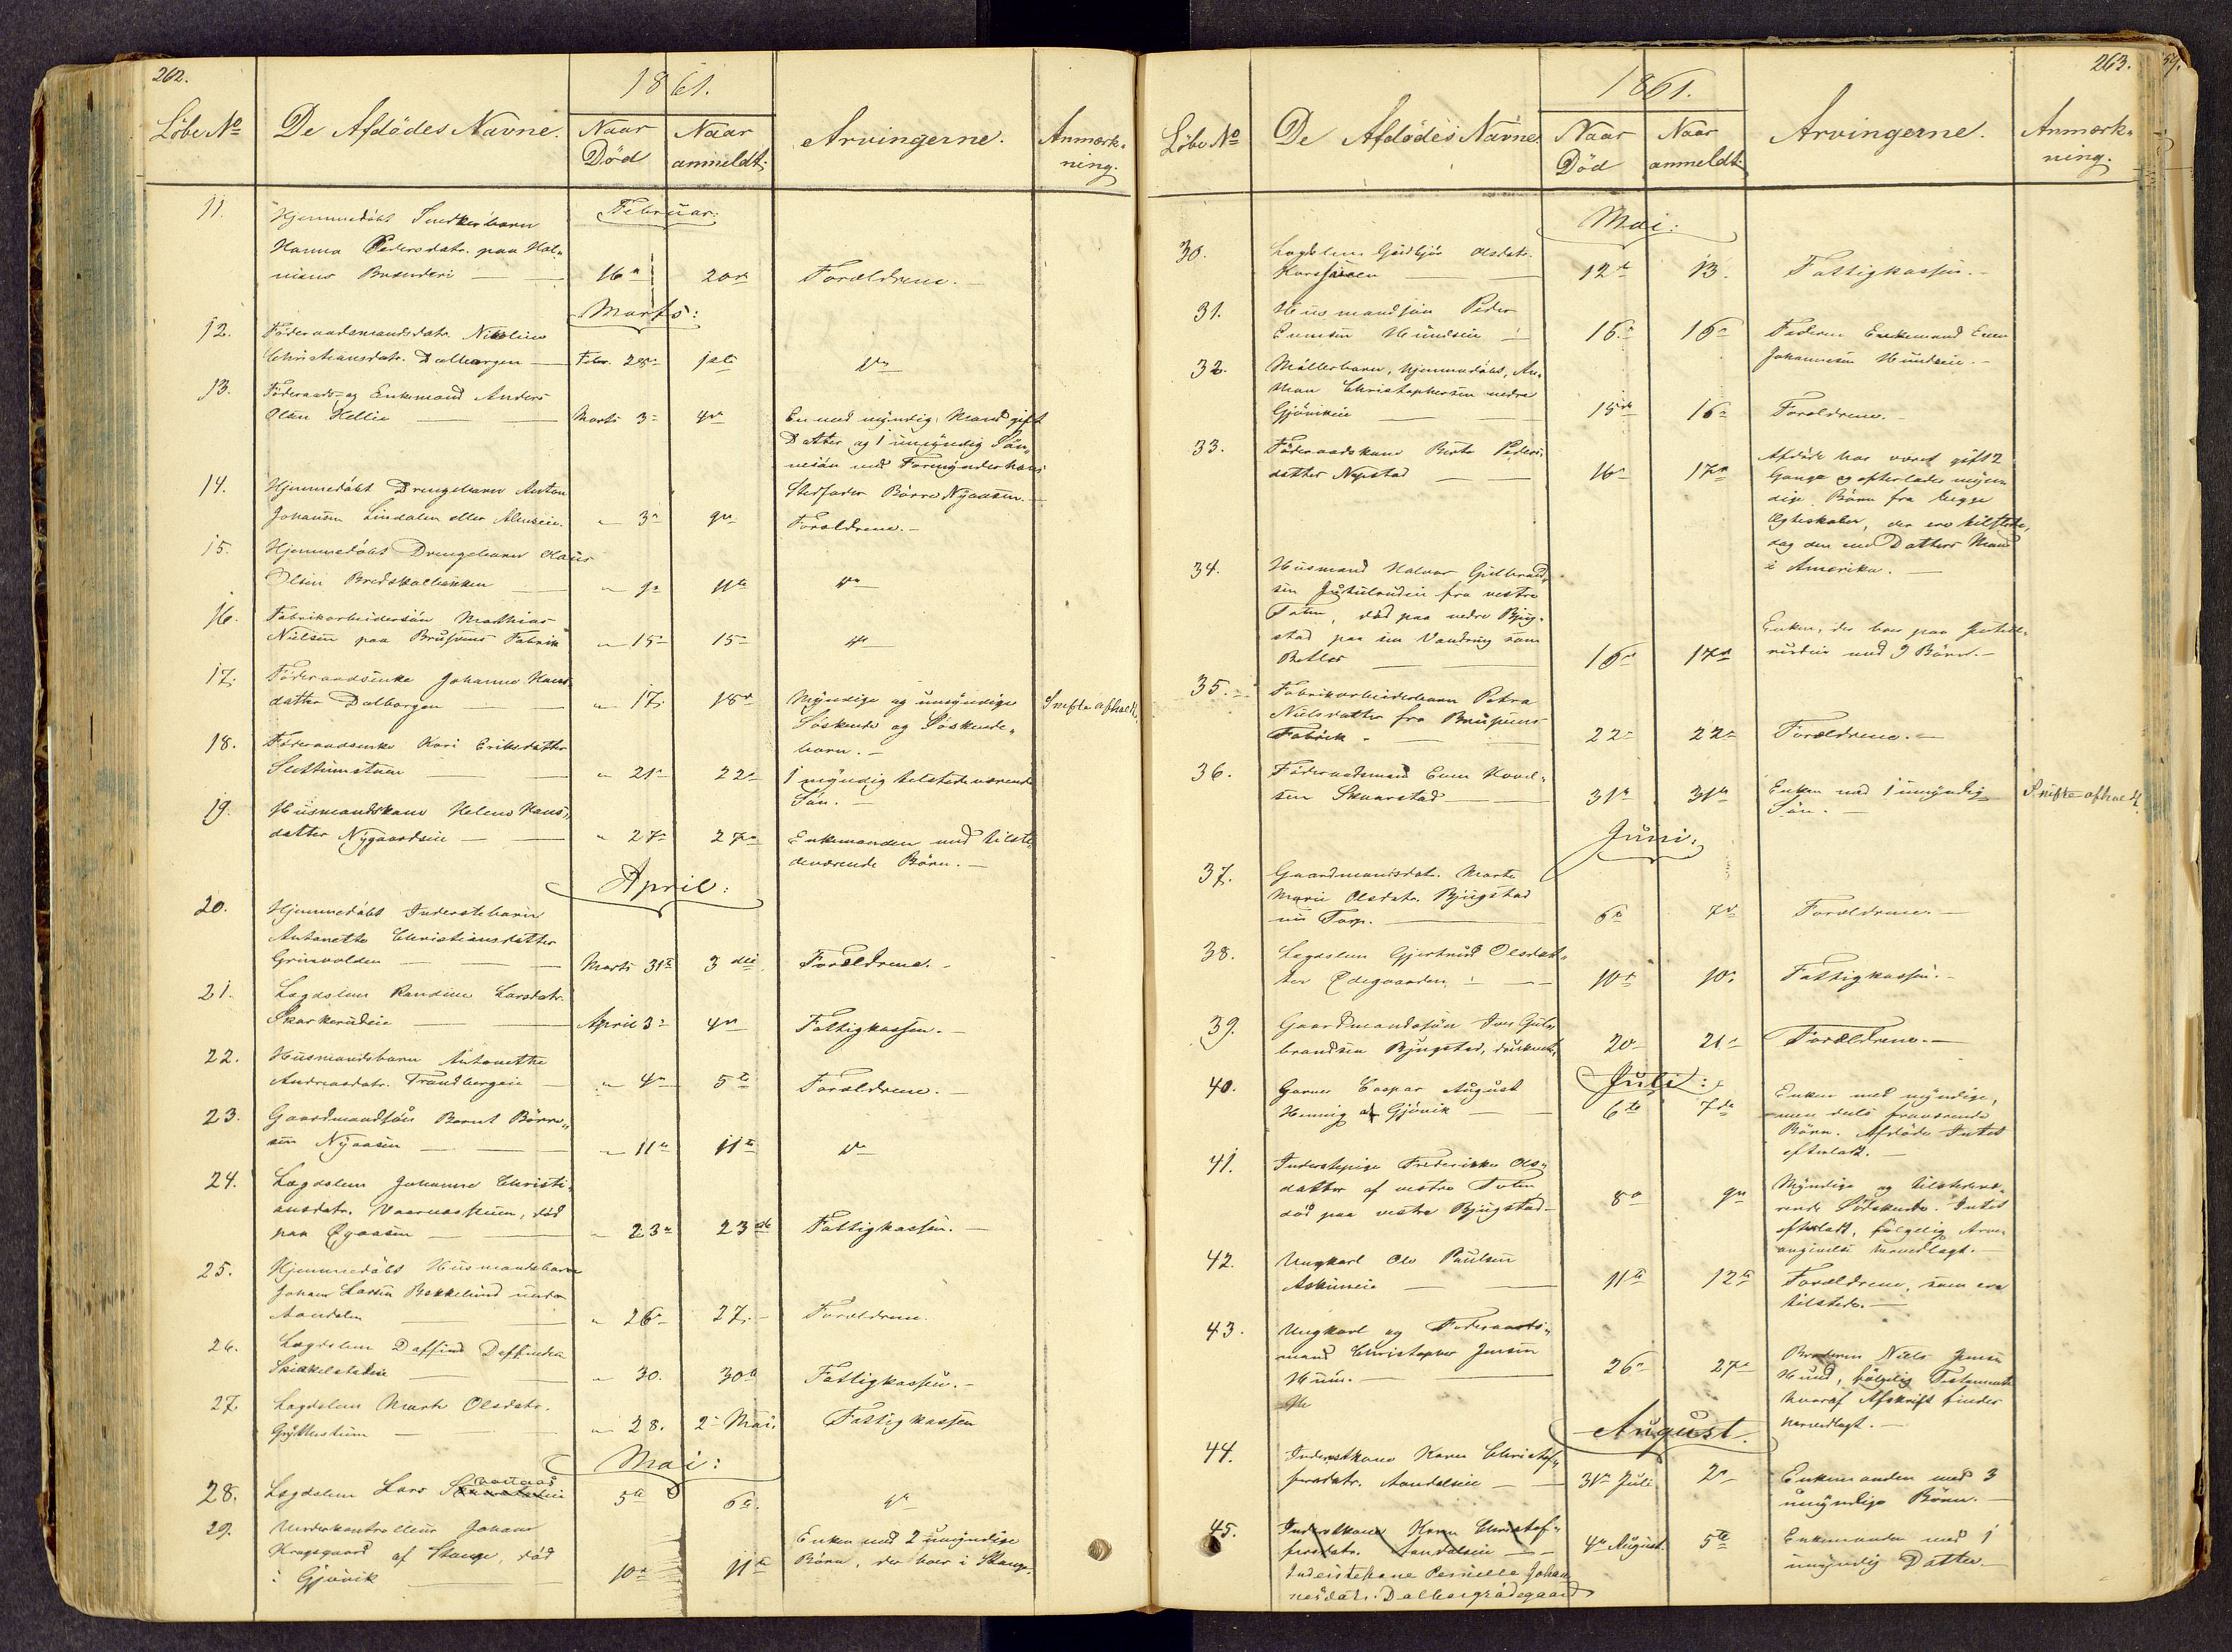 262.
1861.
Löbe No
De Afdödes Navne.
Naar Död
Naar anmeldt.
Arvingerne.
Anmærk-
ning.
Februar:
11.
Hjemmedöbt Snedkerbarn
Hanna Pedersdatr. paa Hol-
mens Brænderi
16de
20de
Forældrene.
Marts:
12.
Föderaadsmandsdatr. Nikoline
Christiansdatr. Dalborgen
Febr. 28de
1ste
do
13.
Föderaads- og Enkemand Anders
Olsen Hellie
Marts 3die
4de
En med myndig Mand gift
Datter og 1 umyndig Søn-
nesön med Formynder hans
Stedfader Börre Nyaasen.
14.
Hjemmedöbt Drengebarn Anton
Johansen Lindalen eller
" 3die
9de
Forældrene.
15.
Hjemmedöbt Drengebarn Olaus
Olsen Bredskalbakken
" 9de
11te
do
16.
Fabrikarbeidersön Mathias
Nielsen paa Brusveens Fabrik
" 15de
15de
do
17.
Föderaadsenke Johanne Hans-
datter Dalborgen
" 17de
18de
Myndige og umyndige
Söskende og Söskende-
barn.
Skifte afholdt.
18.
Föderaadsenke Kari Eriksdatter
Slettumstuen
" 21de
22de
1 myndig tilstedeværende
Sön.
19.
Husmandskone Helene Hans-
datter Nygaardseie
" 27de
27de
Enkemanden med tilste-
deværende Börn.
April:
20.
Hjemmedöbt Inderstebarn
Antonette Christiansdatter
Grimsvolden
Marts 31te
3die
Forældrene.
21.
Lægdslem Randine Larsdatr.
Skarkerudeie
April 3die
4de
Fattigkassen.
22.
Husmandsbarn Antonette
Andreasdatr. Trandbergeie
" 4de
5te
Forældrene.
23.
Gaardmandssön Bernt Börre-
sen Nyaasen
" 11te
11te
do
24.
Lægdslem Johanne Christi-
ansdatr. Vaarnæsstuen, död
paa Egaasen
" 23de
23de
Fattigkassen.
25.
Hjemmedöbt Husmandsbarn
Johan Larsen Bakkelund under
Aandalen
" 26de
27de
Forældrene.
26.
Lægdslem Daffind Daffinden
Skikkelstadeie
" 30.
30te
Fattigkassen.
27.
Lægdslem Marte Olsdatr.
" 28.
2den Mai.
Fattigkassen
Mai:
28.
Lægdslem Lars
5te
6te
do
29.
Underkontrolleur Johan
Kragsgaard af Stange, död
i Gjövik
10de
11te
Enken med 2 umyndige
Börn, der boer i Stange.
263.
1861.
Löbe No
De Afdödes Navne.
Naar Död
Naar anmeldt.
Arvingerne.
Anmærk-
ning.
Mai:
30.
Lægdslem Gudbjör Olsdatr.
12te
13.
Fattigkassen.
31.
Husmandssön Peder
Evensen Hundseie
15de
16de
Faderen Enkemand Even
Johannesen Hundseie.
32.
Möllerbarn, hjemmedöbt, An-
ton Christophersen nedre
Gjövikeie
15de
16de
Forældrene.
33.
Föderaadskone Berte Peders-
datter Nyestad
16de
17de
Afdöde har været gift 2
Gange og efterlader myn-
dige Börn fra begge
Ægteskaber, der ere tilstede,
dog den ene Datters Mand
i Amerika.
34.
Husmand Halvor Gulbrand-
sen Jutulrudeie fra vestre
Toten, död paa nedre Bjug-
stad paa sin Vandring som
Betler
16de
17de
Enken, der boer paa Jutul-
rudeie med 9 Börn.
35.
Fabrikarbeiderbarn Petra
Nielsdatter fra Brusveens
Fabrik.
22de
22de
Forældrene.
36.
Föderaadsmand Even Knud-
sen Skaarstad
31te
31te
Enken med 1 umyndig
Sön.
Skifte afholdt.
Juni:
37.
Gaardmandsdatr. Marte
Marie Olsdatr. Bjugstad
nu Torp.
6te
7de
Forældrene.
38.
Lægdslem Gjertrud Olsdat-
ter Ödegaarden
10de
10de
Fattigkassen.
39.
Gaardmandssön Iver Gul-
brandsen Bjugstad, druknet.
20de
21de
Forældrene.
Juli:
40.
Garver Caspar August
Hennig af Gjövik
6te
7de
Enken med myndige,
men dels fraværende
Börn. Afdöde Intet
efterladt.
41.
Inderstpige Frederikke Ols-
datter af vestre Toten
död paa vestre Bjugstad
8de
9de
Myndige og tilstedevæ-
rende Södskende. Intet
efterladt, fölgelig Arve-
angivelse henedlagt.
42.
Ungkarl Ole Paulsen
Askimeie
11te
12te
Forældrene, som ere
tilstede.
43.
Ungkarl og Föderaads-
mand Christopher Jensen
Huun.
26de
27de
Broderen Niels Jensen
Hund, fölgelig Testament
hvoraf Afskrift findes
nærvedlagt.
August.
44.
Inderstkone Karen Christof-
fersdatr. Aandalseie
31te Juli
2den
Enkemanden med 3
umyndige Börn.
45.
Inderstkone Karen Christof-
fersdatr. Aandalseie
Inderstekone Pernille Johan-
nesdatr. Dalborgödegaard
4de August.
5te
Enkemanden med 1
umyndig Datter